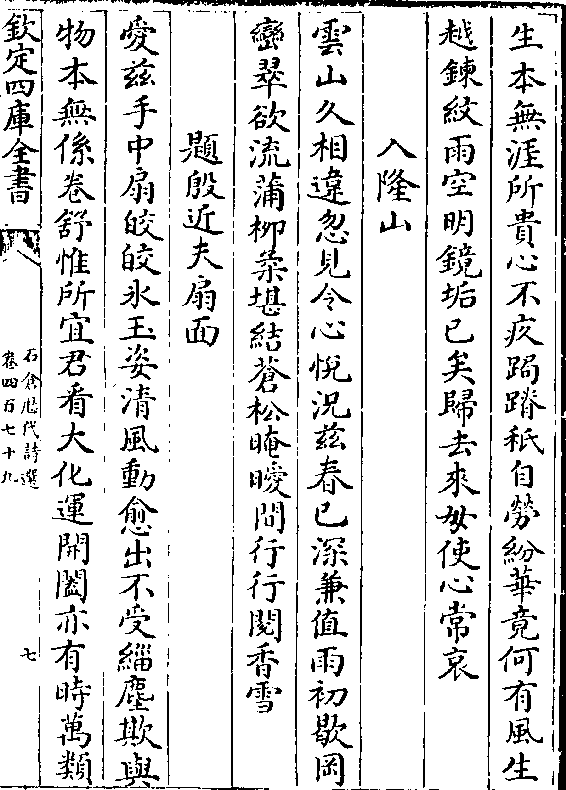 生本無涯所貴心不疚跼蹐秖自勞紛華竟何有風生
越鍊紋雨空明鏡垢已矣歸去來毋使心常哀
入隆山
雲山久相違忽見令心悅況茲春已深兼值雨初歇岡
巒翠欲流蒲柳柔堪結蒼松晻曖間行行閱香雪
題殷近夫扇面
愛茲手中扇皎皎氷玉姿清風動愈出不受緇塵欺與
物本無係卷舒惟所宜君看大化運開闔亦有時萬類
欽定四庫全書
石倉歷代詩選
卷四百七十九
七